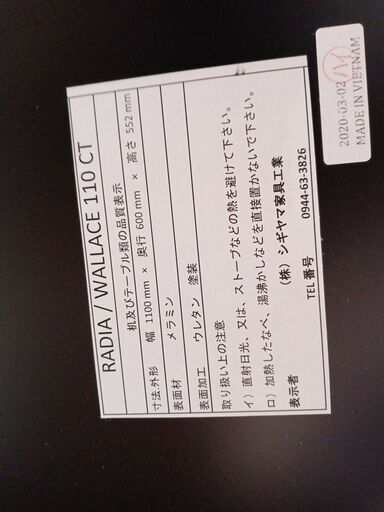 RADIA / WALLACE 110 CT
机及びテーブル類の品質表示
寸法:外形 幅 1100 mm × 奥行 600 mm × 高さ 552 mm
表面材 メラミン
表面加工 ウレタン 塗装
取り扱い上の注意
イ）直射日光、又は、ストーブなどの熱を避けて下さい。
ロ）加熱したなべ、湯沸かしなどを直接置かないで下さい。
表示者 （株）シギヤマ家具工業
TEL 番号 0944-63-3826
2020-03-02
MADE IN VIETNAM